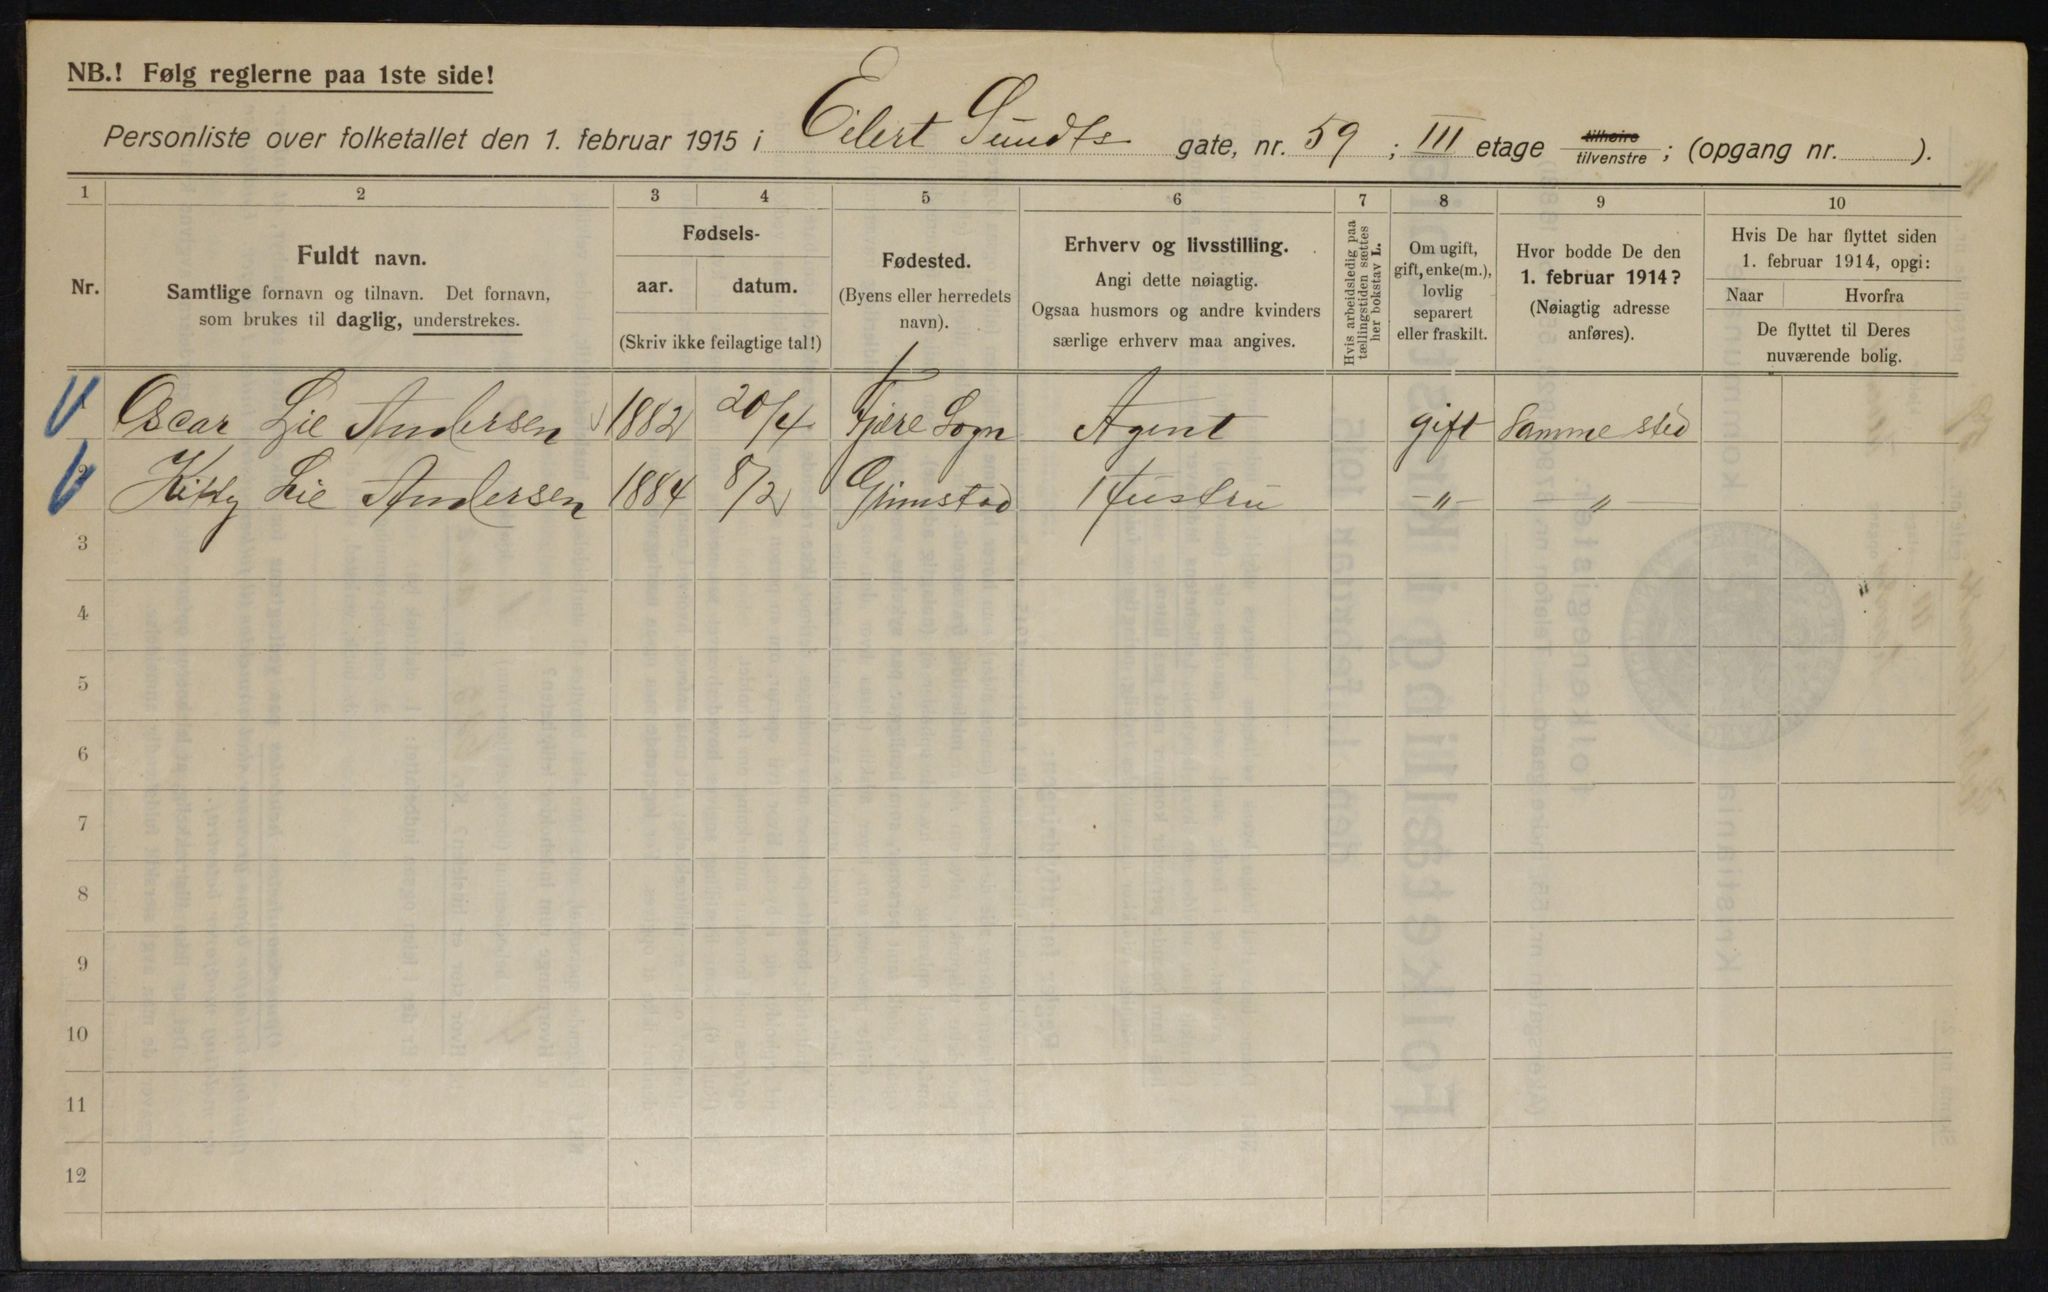 NB.! Følg reglerne paa 1ste side!
Personliste over folketallet den 1. februar 1915 i Eilert Sundts gate, nr. 59 ; III etage tilhøire tilvenstre ; (opgang nr. ).
1 2 3 4 5 6 7 8 9 10
Nr.
Fuldt navn.
Samtlige fornavn og tilnavn. Det fornavn,
som brukes til daglig, understrekes.
Fødsels-
aar. datum.
(Skriv ikke feilagtige tal!)
Fødested.
(Byens eller herredets
navn).
Erhverv og livsstilling.
Angi dette nøiagtig.
Ogsaa husmors og andre kvinders
særlige erhverv maa angives.
Hvis arbeidsledig paa
tællingstiden sættes
her bokstav L.
Om ugift,
gift, enke(m.),
lovlig
separert
eller fraskilt.
Hvor bodde De den
1. februar 1914?
(Nøiagtig adresse
anføres).
Hvis De har flyttet siden
1. februar 1914, opgi:
Naar Hvorfra
De flyttet til Deres
nuværende bolig.
1 Oscar Lie Andersen 1882 20/4 Fjære Sogn Agent gift Samme sted
2 Kitty Lie Andersen 1884 8/2 Grimstad Hustru -"- -"-
3
4
5
6
7
8
9
10
11
12